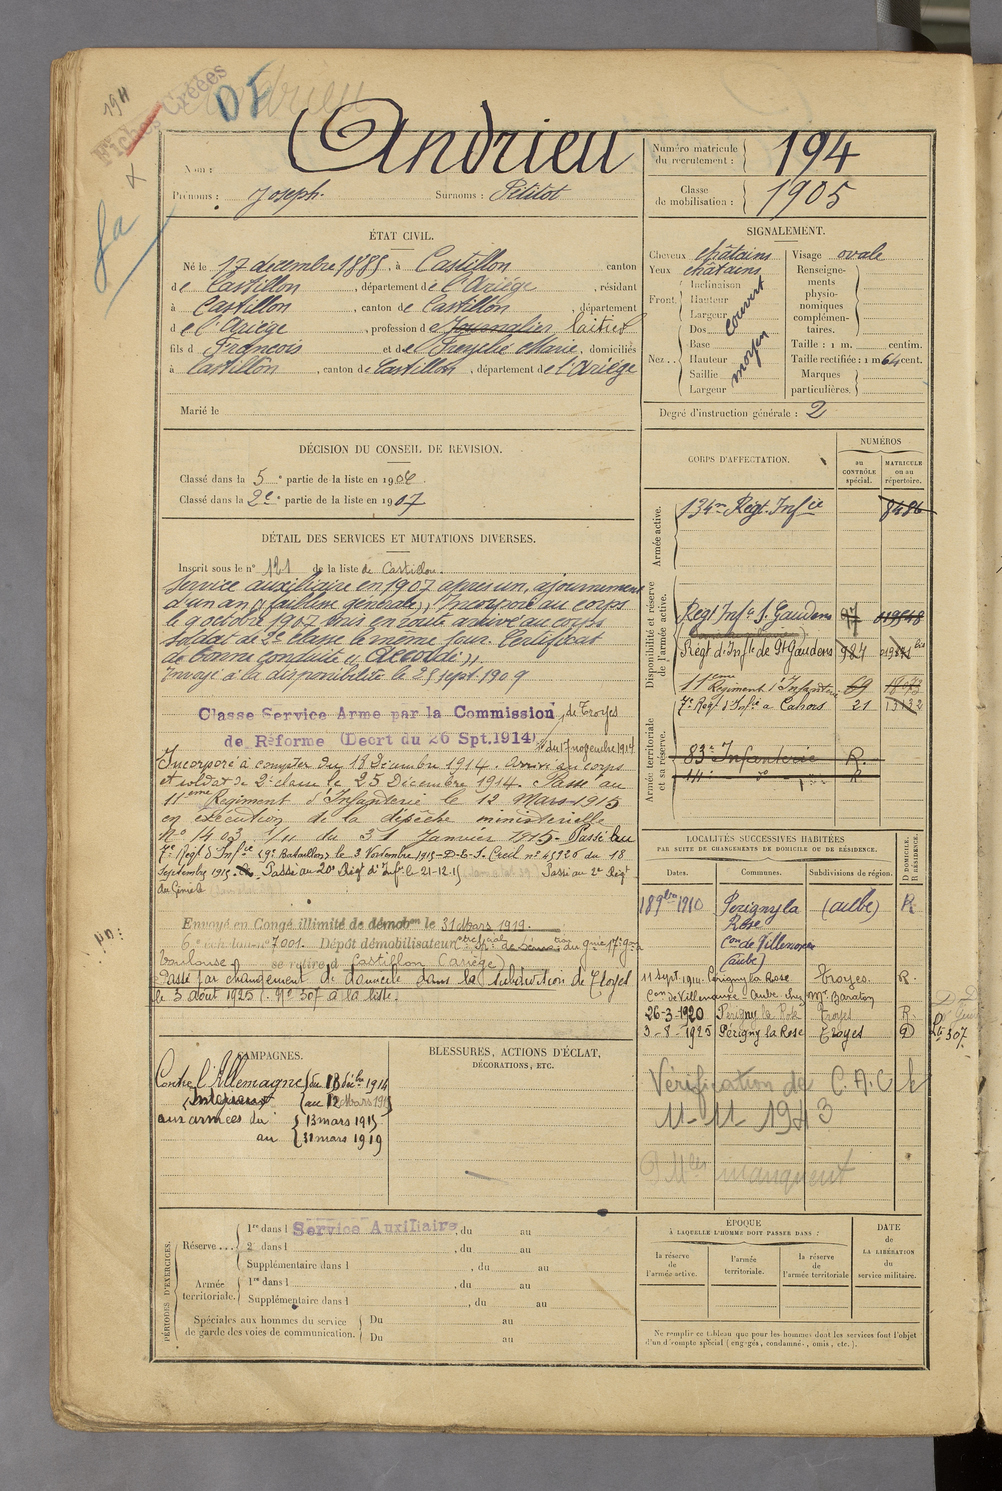 1911
Fiches Créées
DF
Andrieu
Nom :
Prénoms : Joseph. Surnoms : Petitot
Numéro matricule du recrutement : 194
Classe de mobilisation : 1905
ÉTAT CIVIL.
Né le 17 decembre 1885, à Castillon, canton
de Castillon, département de l'Ariége, résidant
à Castillon, canton de Castillon, département
de l'Ariege, profession de Journalier laitier
fils de François et de Freyche Marie, domiciliés
à Castillon, canton de Castillon, département de l'Ariége
Marié le
SIGNALEMENT.
Cheveux châtains
Yeux châtains
Front. Inclinaison
Hauteur
Largeur
couvert
Nez... Dos
Base
Hauteur
Saillie
Largeur
moyen
Visage ovale
Renseignements physionomiques complémentaires.
Taille : 1 m. centim.
Taille rectifiée : 1 m 64 cent.
Marques particulières.
Degré d'instruction générale : 2
DÉCISION DU CONSEIL DE REVISION.
Classé dans la 5e partie de la liste en 1906.
Classé dans la 2e partie de la liste en 1907
DÉTAIL DES SERVICES ET MUTATIONS DIVERSES.
Inscrit sous le n° 121 de la liste de Castillon.
Service auxiliaire en 1907 après un ajournement
d'un an (faiblesse générale). Incorporé au corps
le 9 octobre 1907 mis en route arrivé au corps
soldat de 2e classe le même jour. Certificat
de bonne conduite « Accordé ».
Envoyé à la disponibilité le 25 sept. 1909
Classe Service Arme par la Commission de Troyes
de Réforme (Decrt du 26 Spt. 1914) du 17 novembre 1914
Incorporé à compter du 18 Décembre 1914. Arrivé au corps
et soldat de 2e classe le 25 Décembre 1914. Passé au
11eme Régiment d'Infanterie le 12 Mars 1915
en exécution de la dépêche ministerielle
No 1403 1/11 du 31 Janvier 1915. Passé au
7e Régt d'Infie (9e Bataillon) le 3 Novembre 1915 D.E.S. Creil no 45920 du 18
Septembre 1915. Passé au 20e Régt d'Infie le 21-12-15 Passé au 2e Régt
du Génie le
Envoyé en Congé illimité de démobon le 31 Mars 1919.
6e échelon no 7001. Dépôt démobilisateur du génie 17e gon
Toulouse se retire à Castillon (Ariège)
Passé par changement de domicile dans la subdivision de Troyes
le 3 août 1925. No 307 à la liste.
CORPS D'AFFECTATION.
NUMÉROS
au CONTRÔLE spécial.
MATRICULE ou au répertoire.
Armée active.
134me Régt Infie 8486
Disponibilité et réserve de l'armée active.
Régt Infie St Gaudens 97
Régt d'Infie de St Gaudens 984
11eme Régiment d'Infanterie 69
7e Régt d'Infie à Cahors 21
Armée territoriale et sa réserve.
83e Infanterie R.
14e do R
LOCALITÉS SUCCESSIVES HABITÉES
PAR SUITE DE CHANGEMENTS DE DOMICILE OU DE RÉSIDENCE.
Dates. Communes. Subdivisions de région. D DOMICILE. R RÉSIDENCE.
18 9bre 1910 Perigny la Rose (aube) R
Con de Villenauxe
(aube)
11 Sept. 1914 Périgny la Rose Troyes. R.
Con de Villenauxe Aube chez Mr Baraton
26-3-1920 Périgny la Rose Troyes R.
3-8-1925 Périgny la Rose Troyes D
Lte 307.
Vérification de C.A.C
11-11-1943
Mles manquent
CAMPAGNES.
Contre l'Allemagne du 18 décbre 1914
Intérieur au 12 Mars 1915
aux armées du 13 mars 1915
au 31 mars 1919
BLESSURES, ACTIONS D'ÉCLAT,
DÉCORATIONS, ETC.
PÉRIODES D'EXERCICES.
Réserve... 1re dans l Service Auxiliaire, du au
2e dans l , du au
Supplémentaire dans l , du au
Armée territoriale. 1re dans l , du au
Supplémentaire dans l , du au
Spéciales aux hommes du service de garde des voies de communication. Du au
Du au
ÉPOQUE
À LAQUELLE L'HOMME DOIT PASSER DANS :
la réserve de l'armée active.
l'armée territoriale.
la réserve de l'armée territoriale
DATE de LA LIBÉRATION du service militaire.
Ne remplir ce tableau que pour les hommes dont les services font l'objet
d'un décompte spécial (engagés, condamnés, omis, etc.).